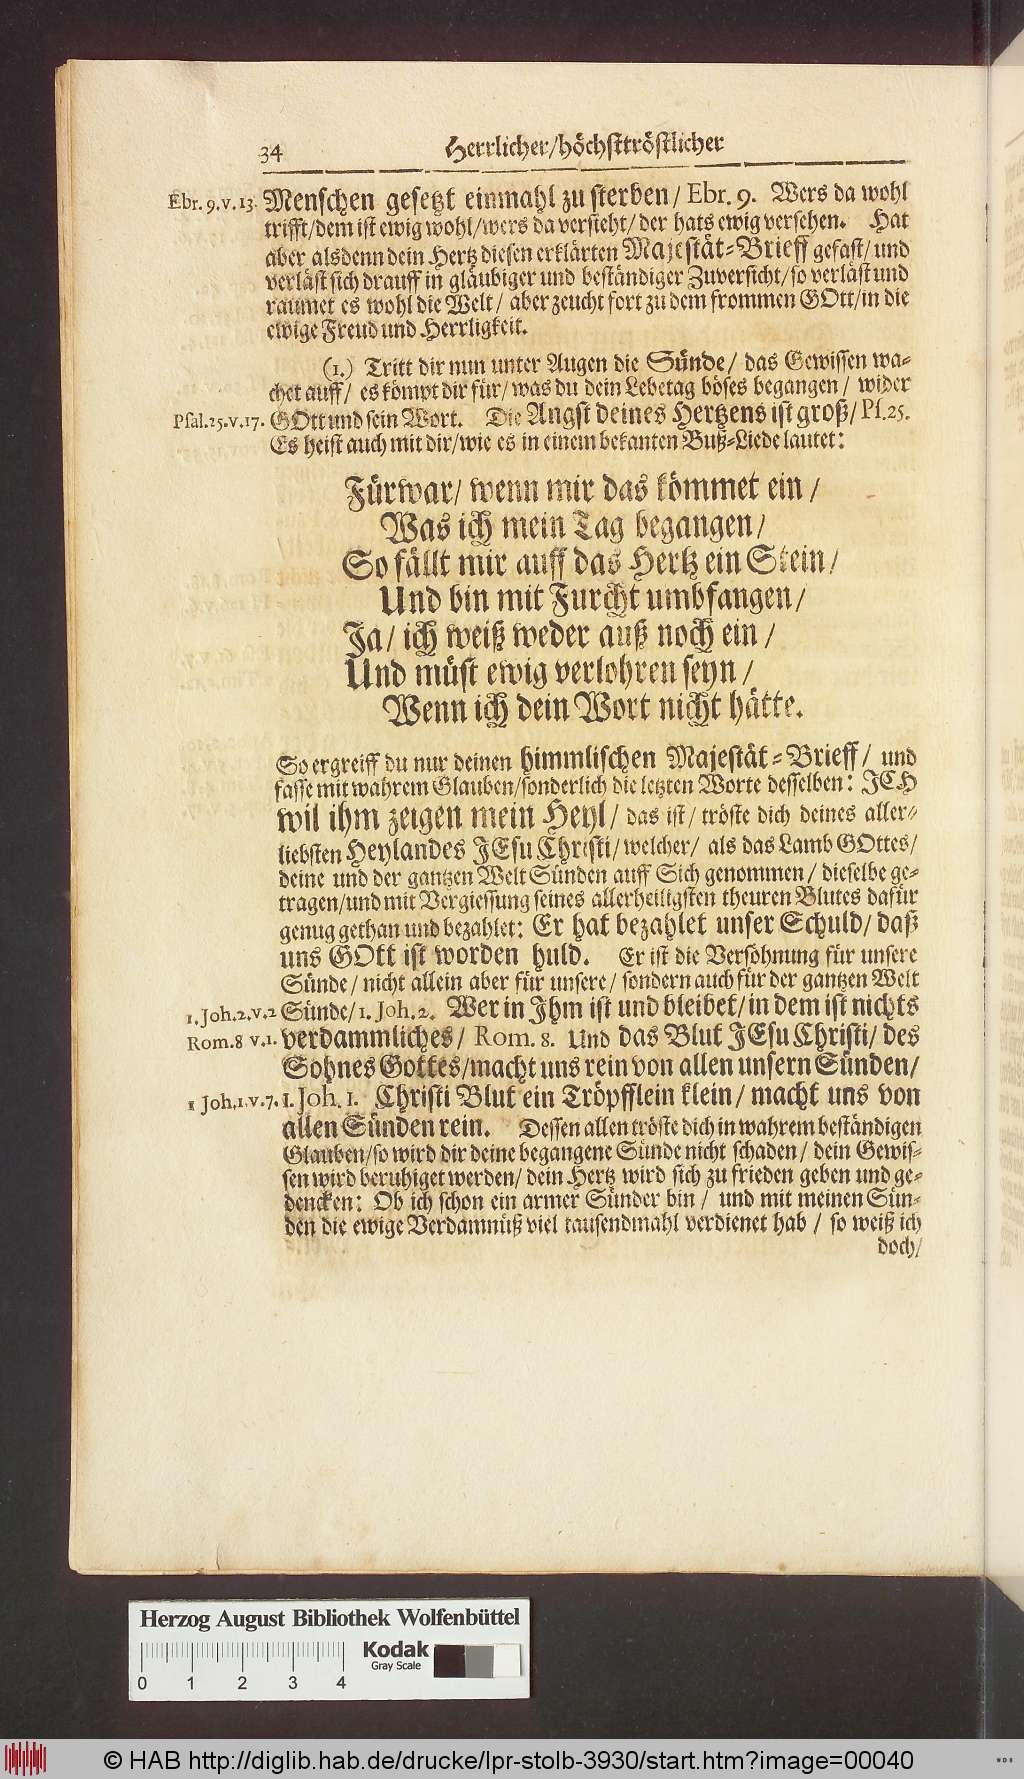 34 Herrlicher/höchsttröstlicher
Ebr. 9. v. 13. Menschen gesetzt einmahl zu sterben / Ebr. 9. Wers da wohl
trifft/dem ist ewig wohl/wers da versteht/ der hats ewig versehen. Hat
aber alsdenn dein Hertz diesen erklärten Majestät-Brieff gefast/ und
verläst sich drauff in gläubiger und beständiger Zuversicht/so verläst und
raumet es wohl die Welt/ aber zeucht fort zu dem frommen GOtt/in die
ewige Freud und Herrligkeit.
(1.) Tritt dir nun unter Augen die Sünde/ das Gewissen wa-
chet auff/ es kömpt dir für/ was du dein Lebetag böses begangen/ wider
Psal. 25. v. 17. GOtt und sein Wort. Die Angst deines Hertzens ist groß/ Ps. 25.
Es heist auch mit dir/wie es in einem bekanten Buß-Liede lautet:
Fürwar/ wenn mir das kömmet ein /
Was ich mein Tag begangen/
So fällt mir auff das Hertz ein Stein/
Und bin mit Furcht umbfangen/
Ja/ ich weiß weder auß noch ein /
Und müst ewig verlohren seyn /
Wenn ich dein Wort nicht hätte.
So ergreiff du nur deinen himmlischen Majestät-Brieff/ und
fasse mit wahrem Glauben/sonderlich die letzten Worte desselben: JCH
wil ihm zeigen mein Heyl/ das ist/ tröste dich deines aller-
liebsten Heylandes JEsu Christi/ welcher/ als das Lamb GOttes/
deine und der gantzen Welt Sünden auff Sich genommen/ dieselbe ge-
tragen/und mit Vergiessung seines allerheiligsten theuren Blutes dafür
genug gethan und bezahlet: Er hat bezahlet unser Schuld/ daß
uns GOtt ist worden huld. Er ist die Versöhnung für unsere
Sünde/ nicht allein aber für unsere/ sondern auch für der gantzen Welt
1. Joh. 2. v. 2 Sünde/ 1. Joh. 2. Wer in Ihm ist und bleibet/ in dem ist nichts
Rom. 8 v. 1. verdammliches/ Rom. 8. Und das Blut JEsu Christi/ des
Sohnes Gottes/macht uns rein von allen unsern Sünden/
1 Joh. 1. v. 7. 1. Joh. 1. Christi Blut ein Tröpfflein klein/ macht uns von
allen Sünden rein. Dessen allen tröste dich in wahrem beständigen
Glauben/so wird dir deine begangene Sünde nicht schaden/ dein Gewis-
sen wird beruhiget werden/ dein Hertz wird sich zu frieden geben und ge-
dencken: Ob ich schon ein armer Sünder bin/ und mit meinen Sün-
den die ewige Verdamnüß viel tausendmahl verdienet hab / so weiß ich
doch/
Herzog August Bibliothek Wolfenbüttel
Kodak
Gray Scale
0 1 2 3 4
© HAB http://diglib.hab.de/drucke/lpr-stolb-3930/start.htm?image=00040